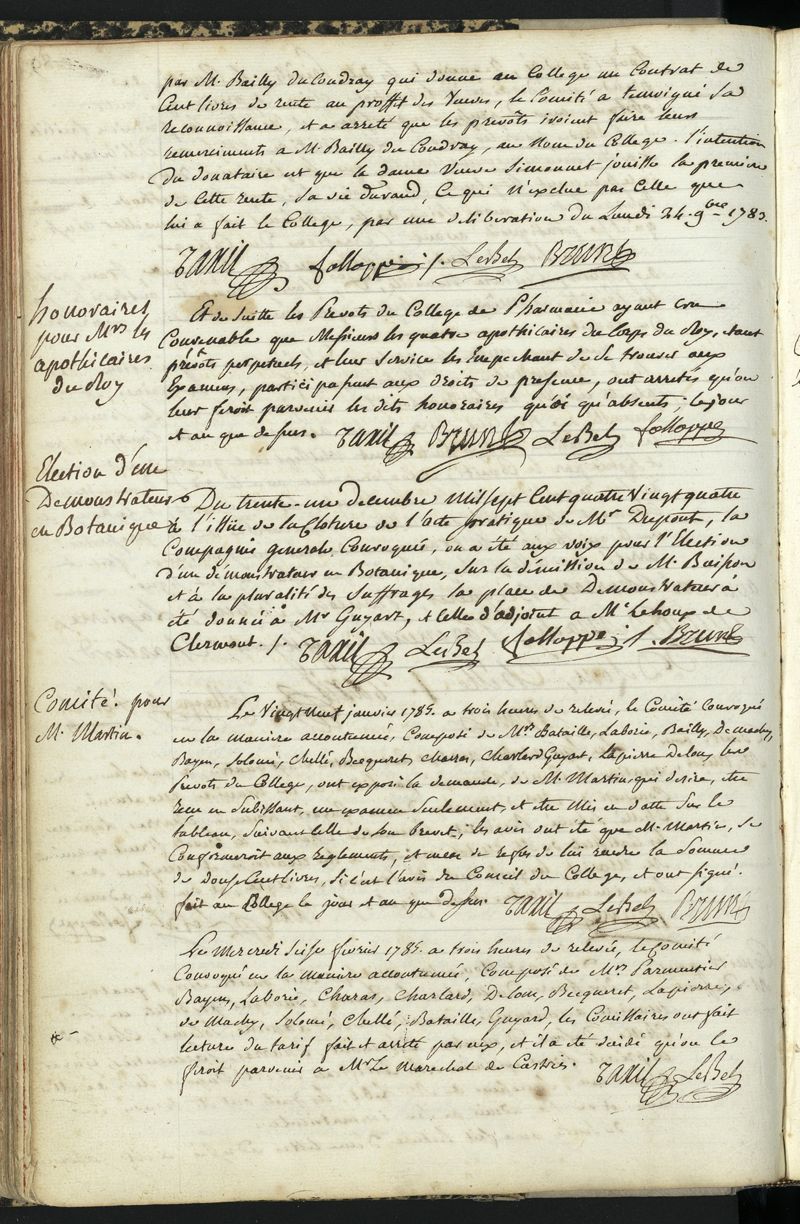 par M. Bailly ducoudray qui donne au College un Contrat de
Cent livres de rente au proffit des Veuves, le Comité a temoigné sa
reconnoissance, et a arreté que les prevots iroient faire leurs
remerciments a M. Bailly du Coudray, au nom du College. l'intention
du donataire est que la dame Veuve Simonnet jouisse la premiere
de cette rente, sa vie durand, Ce qui n'exclue pas Celle que
lui a fait le College, par une deliberation du Lundi 24. 9bre 1783.
Taxil folloppe /. LeBel Brun
honoraires
pour Mrs les
apothicaires
du Roy
Et de suitte les Prevots du College de Pharmacie ayant cru
Convenable que Messieurs les quatre apothicaires du Corps du Roy, etant
prévots perpetuels, et leur service les Empechant de se trouver aux
Examens, participassent aux droits de presence, ont arretés qu'on
leur feroit parvenir les dits honoraires qu'absents; le jour
et an que dessus. Taxil Brun LeBel folloppe
Election d'un
Demonstrateur
en Botanique
Du trente-un decembre Mil sept Cent quatre Vingt quatre
à l'issüe de la Cloture de l'acte pratique de Mr Dupont, la
Compagnie generale Convoquée, on a été aux voix pour l'Election
d'un démonstrateur en Botanique, sur la démission de M. Buisson
et à la pluralité des suffrages la place de Demonstrateur à
été donnée à Mr Guyart, et Celle d'adjoint a Mr Lehoux de
Clermont. /. Taxil LeBel folloppe /. Brun
Comité pour
M. Martin.
Le Vingt Neuf janvier 1785. a trois heures de relevée, le Comité Convoqué
en la maniere accoutumée, Composé de Mrs Bataille, Laborie, Bailly, Demachy,
Bayen, Solomé, Chellé, Becqueret, Charas, Charlard, Guyart, Lapierre, Delon, les
Prevots du College, ont exposé la demande, de M. Martin, qui desire, etre
recu en subissant, un examen seulement, et etre mis en datte sur le
tableau, suivant celle de son brevet; les avis ont été que M. Martin, se
Conformeroit aux reglements, et de lui rendre la Somme
de douze Cent livres, si c'est l'avis du Conseil du College, et ont signé.
fait au College le jour et an que dessus. Taxil LeBel Brun
Le Mercredi seize fevrier 1785. a trois heures de relevée, le Comité
Convoqué en la maniere accoutumée, Composé de Mrs Parmentier
Bayen, Laborie, Charas, Charlard, Delon, Becqueret, Lapierre,
de Machy, Solomé, Chellé, Bataille, Guyard, les Comissaires ont fait
lecture du tarif fait et arreté par eux, et il a été decidé qu'on le
feroit parvenir a Mr Le Marechal de Castries. Taxil LeBel